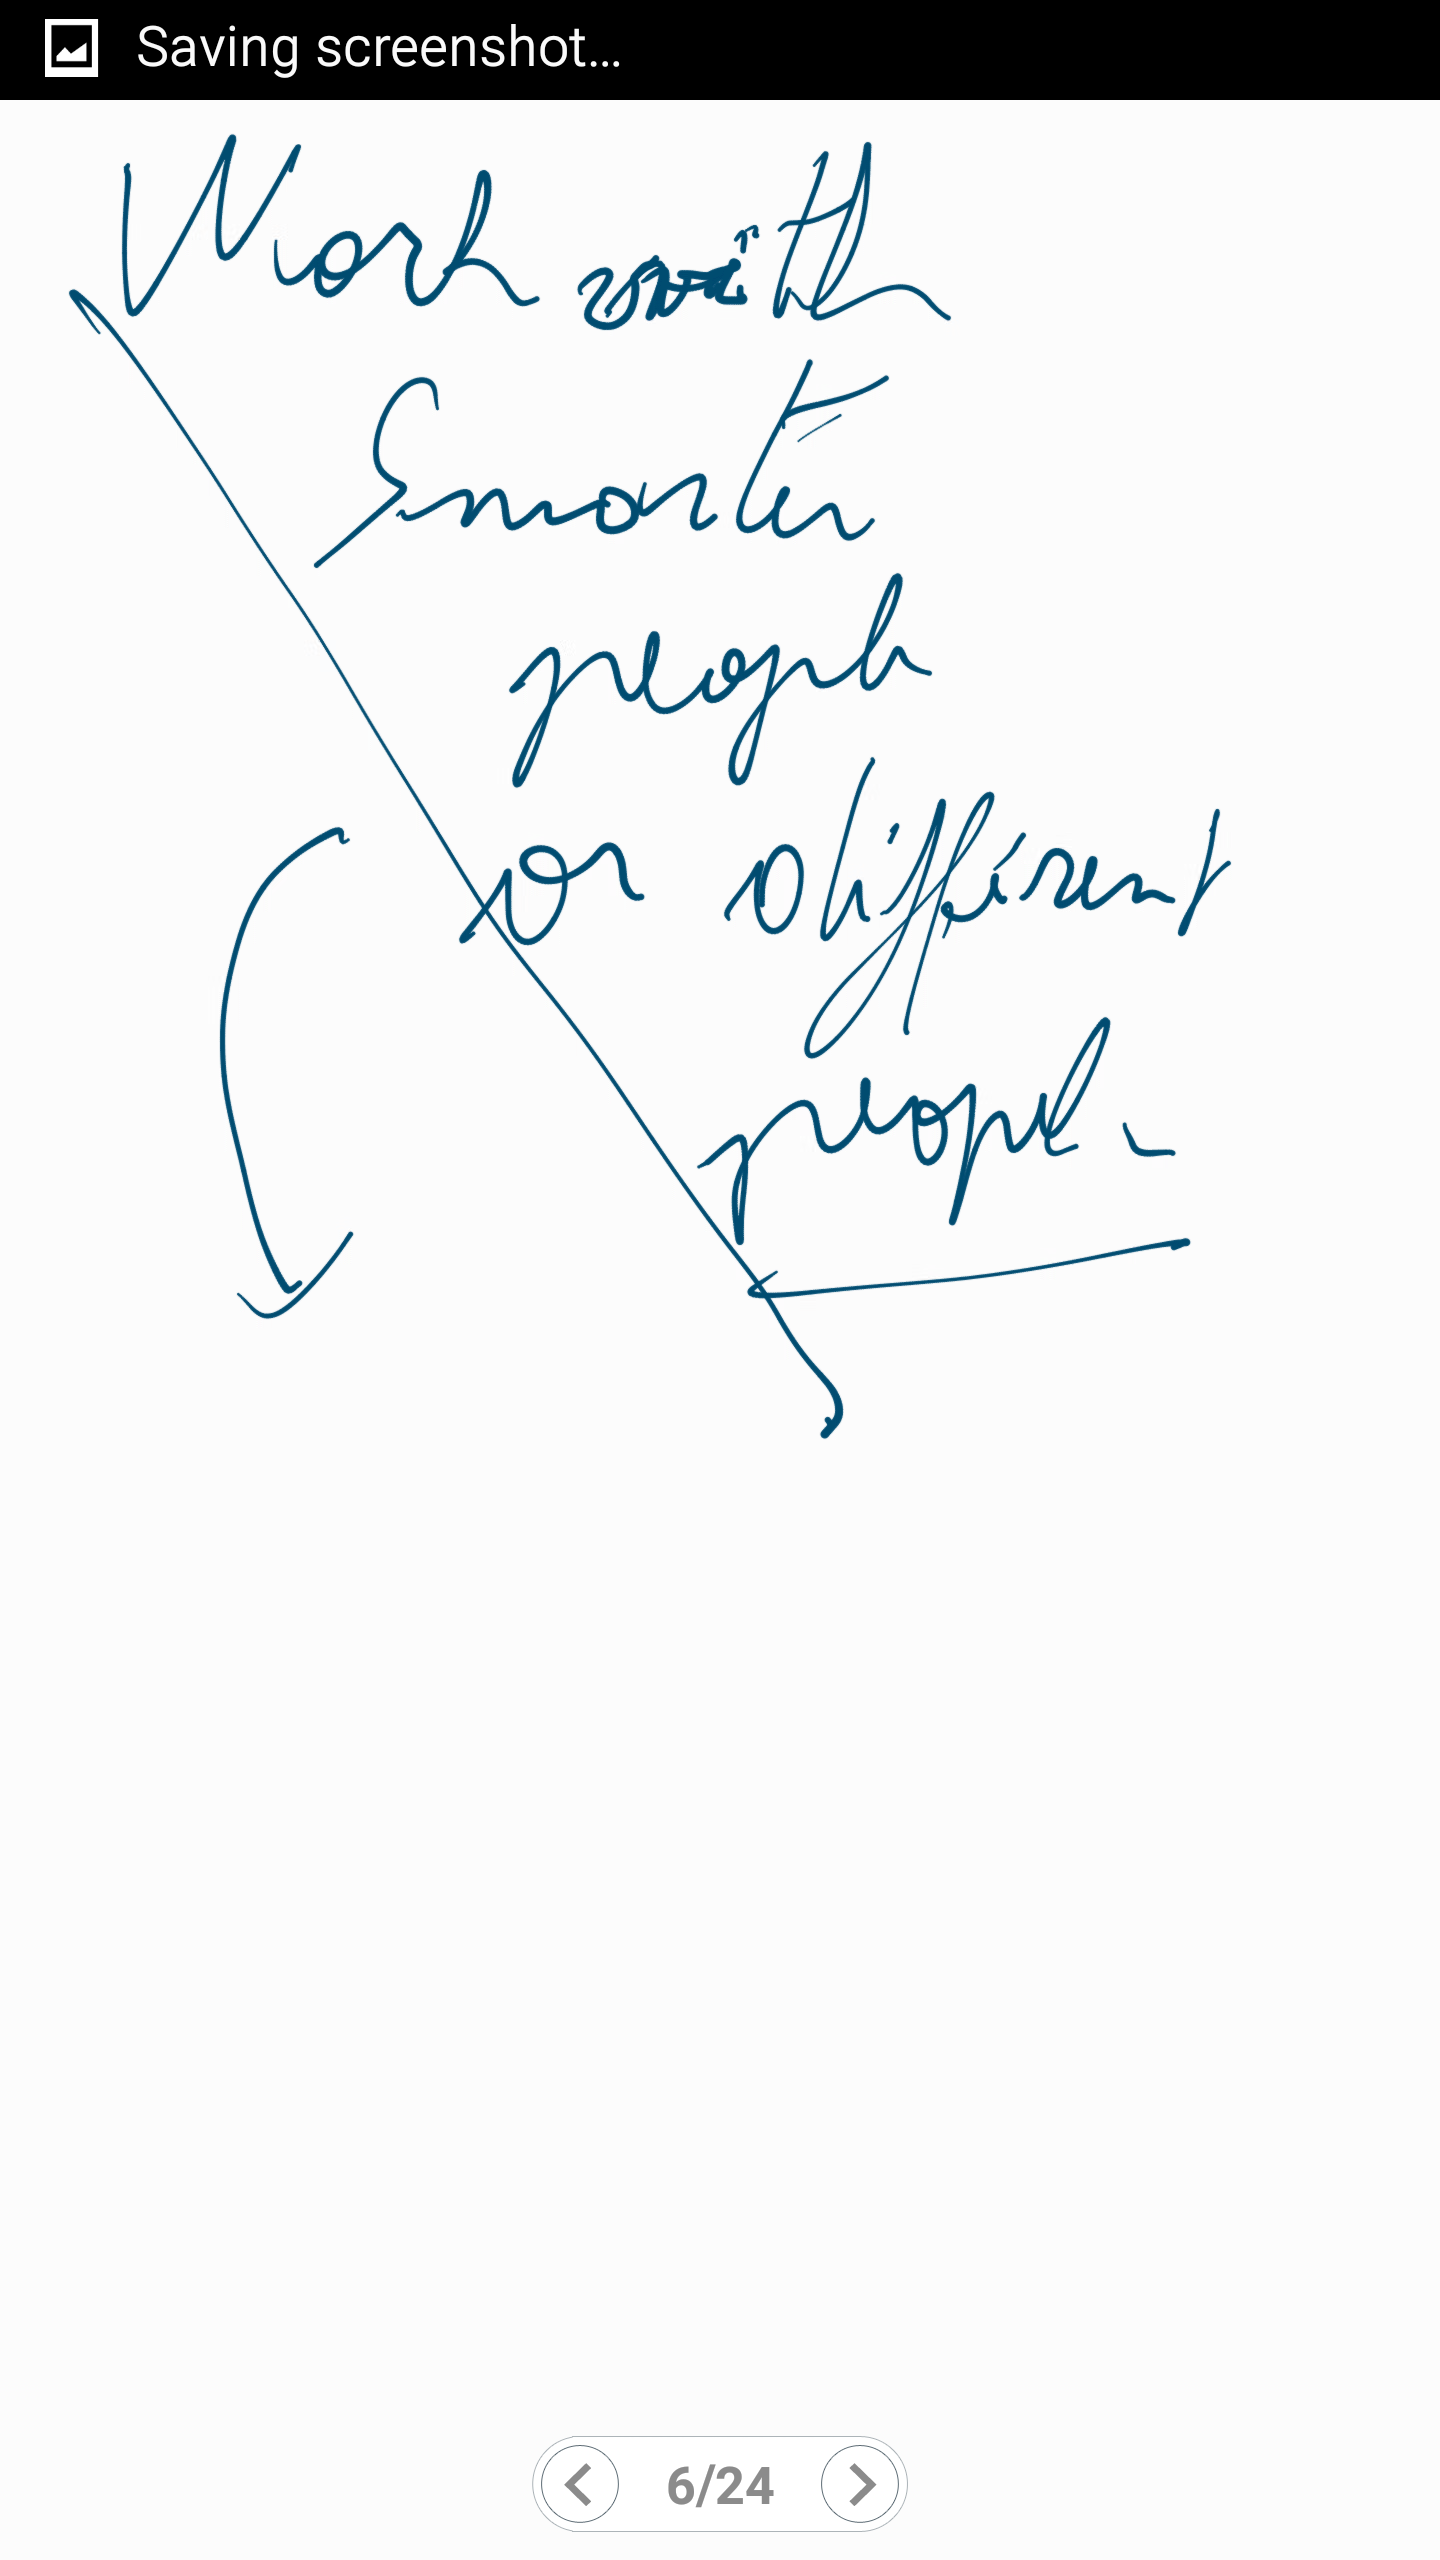 Saving screenshot...
Work with
Smarter
people
or different
people.
6/24